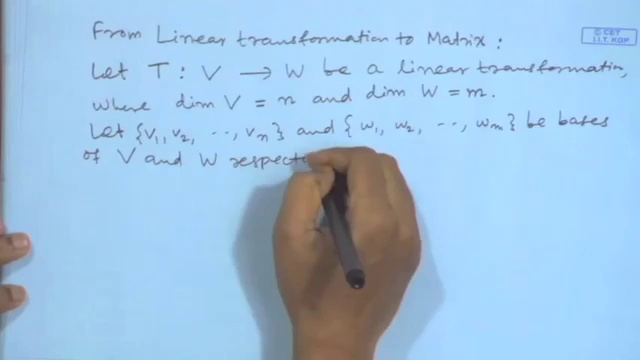 From Linear transformation to Matrix :
Let T : V → W be a linear transformation,
where dim V = n and dim W = m.
Let {v₁, v₂, ..., vₙ} and { w₁, w₂, ..., wₘ} be bases
of V and W respecti
© CET
I.I.T. KGP